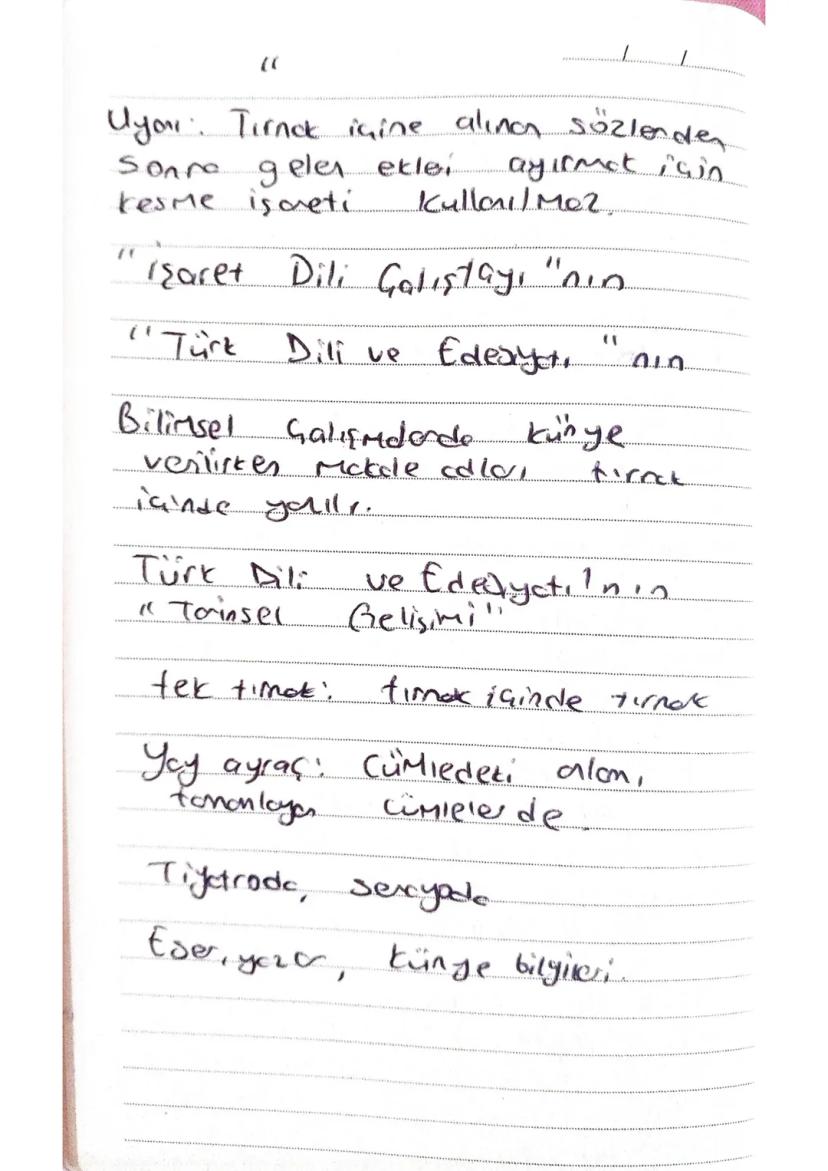 “
/ /
Uyarı: Tırnak içine alınan sözlerden
sonra gelen ekleri ayırmak için
kesme işareti kullanılmaz.
“İşaret Dili Çalıştayı”nın
“Türk Dili ve Edebiyatı”nın
Bilimsel çalışmalarda künye
verilirken makale adları tırnak
içinde yazılır.
Türk Dili ve Edebiyatı'nın
“Tarihsel Gelişimi”
tek tırnak: tırnak içinde tırnak
Yay ayraç: Cümledeki alan,
tamamlayan cümlelerde.
Tiyatroda, senaryoda
Eser, yazar, künye bilgileri.